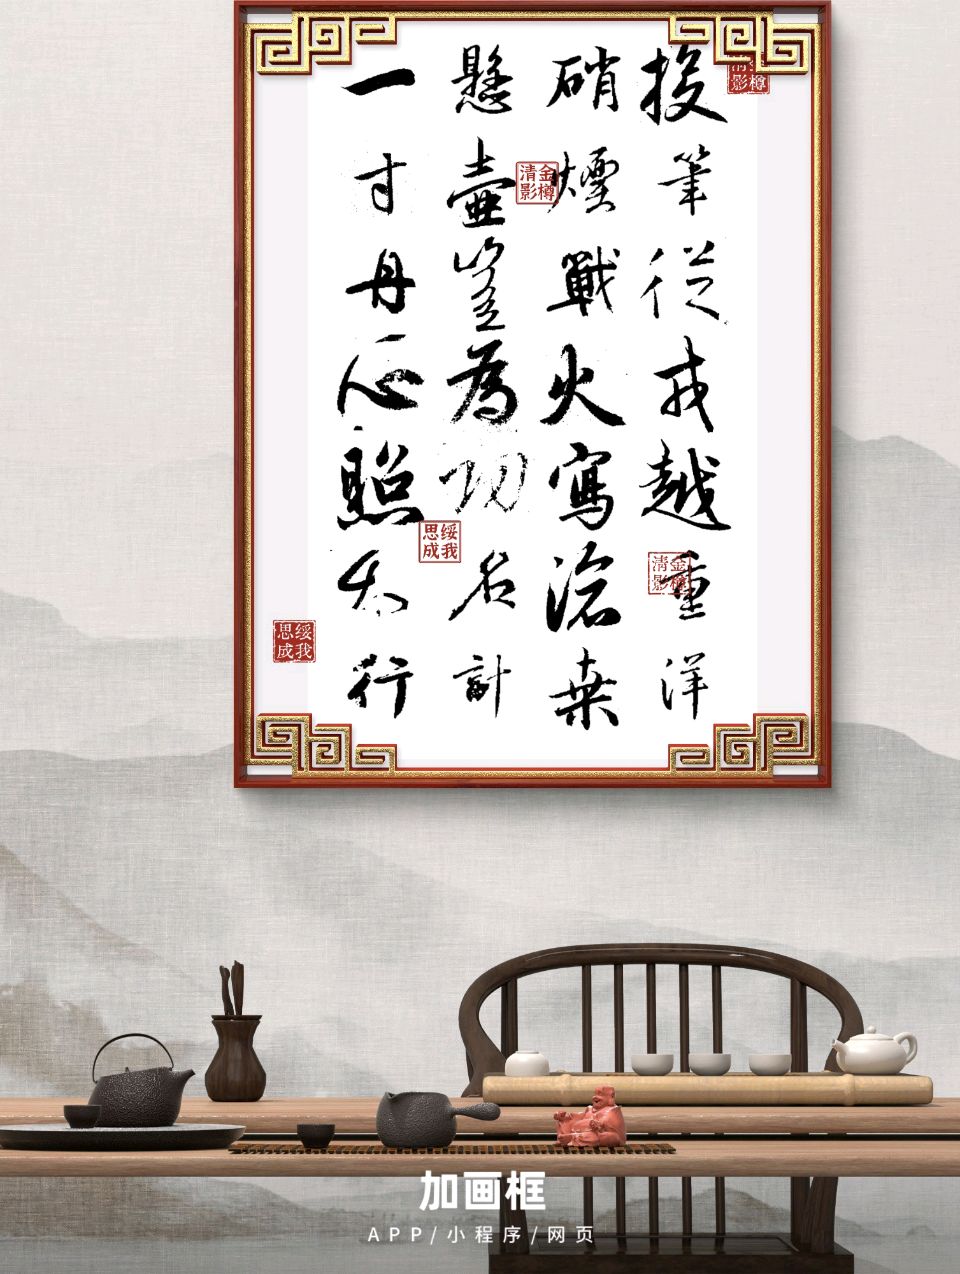 投筆從戎越重洋
硝煙戰火寫滄桑
懸壺豈為功名計
一寸丹心照大行
金樽清影
金樽清影
金樽清影
绥我思成
绥我思成
加画框
APP/小程序/网页